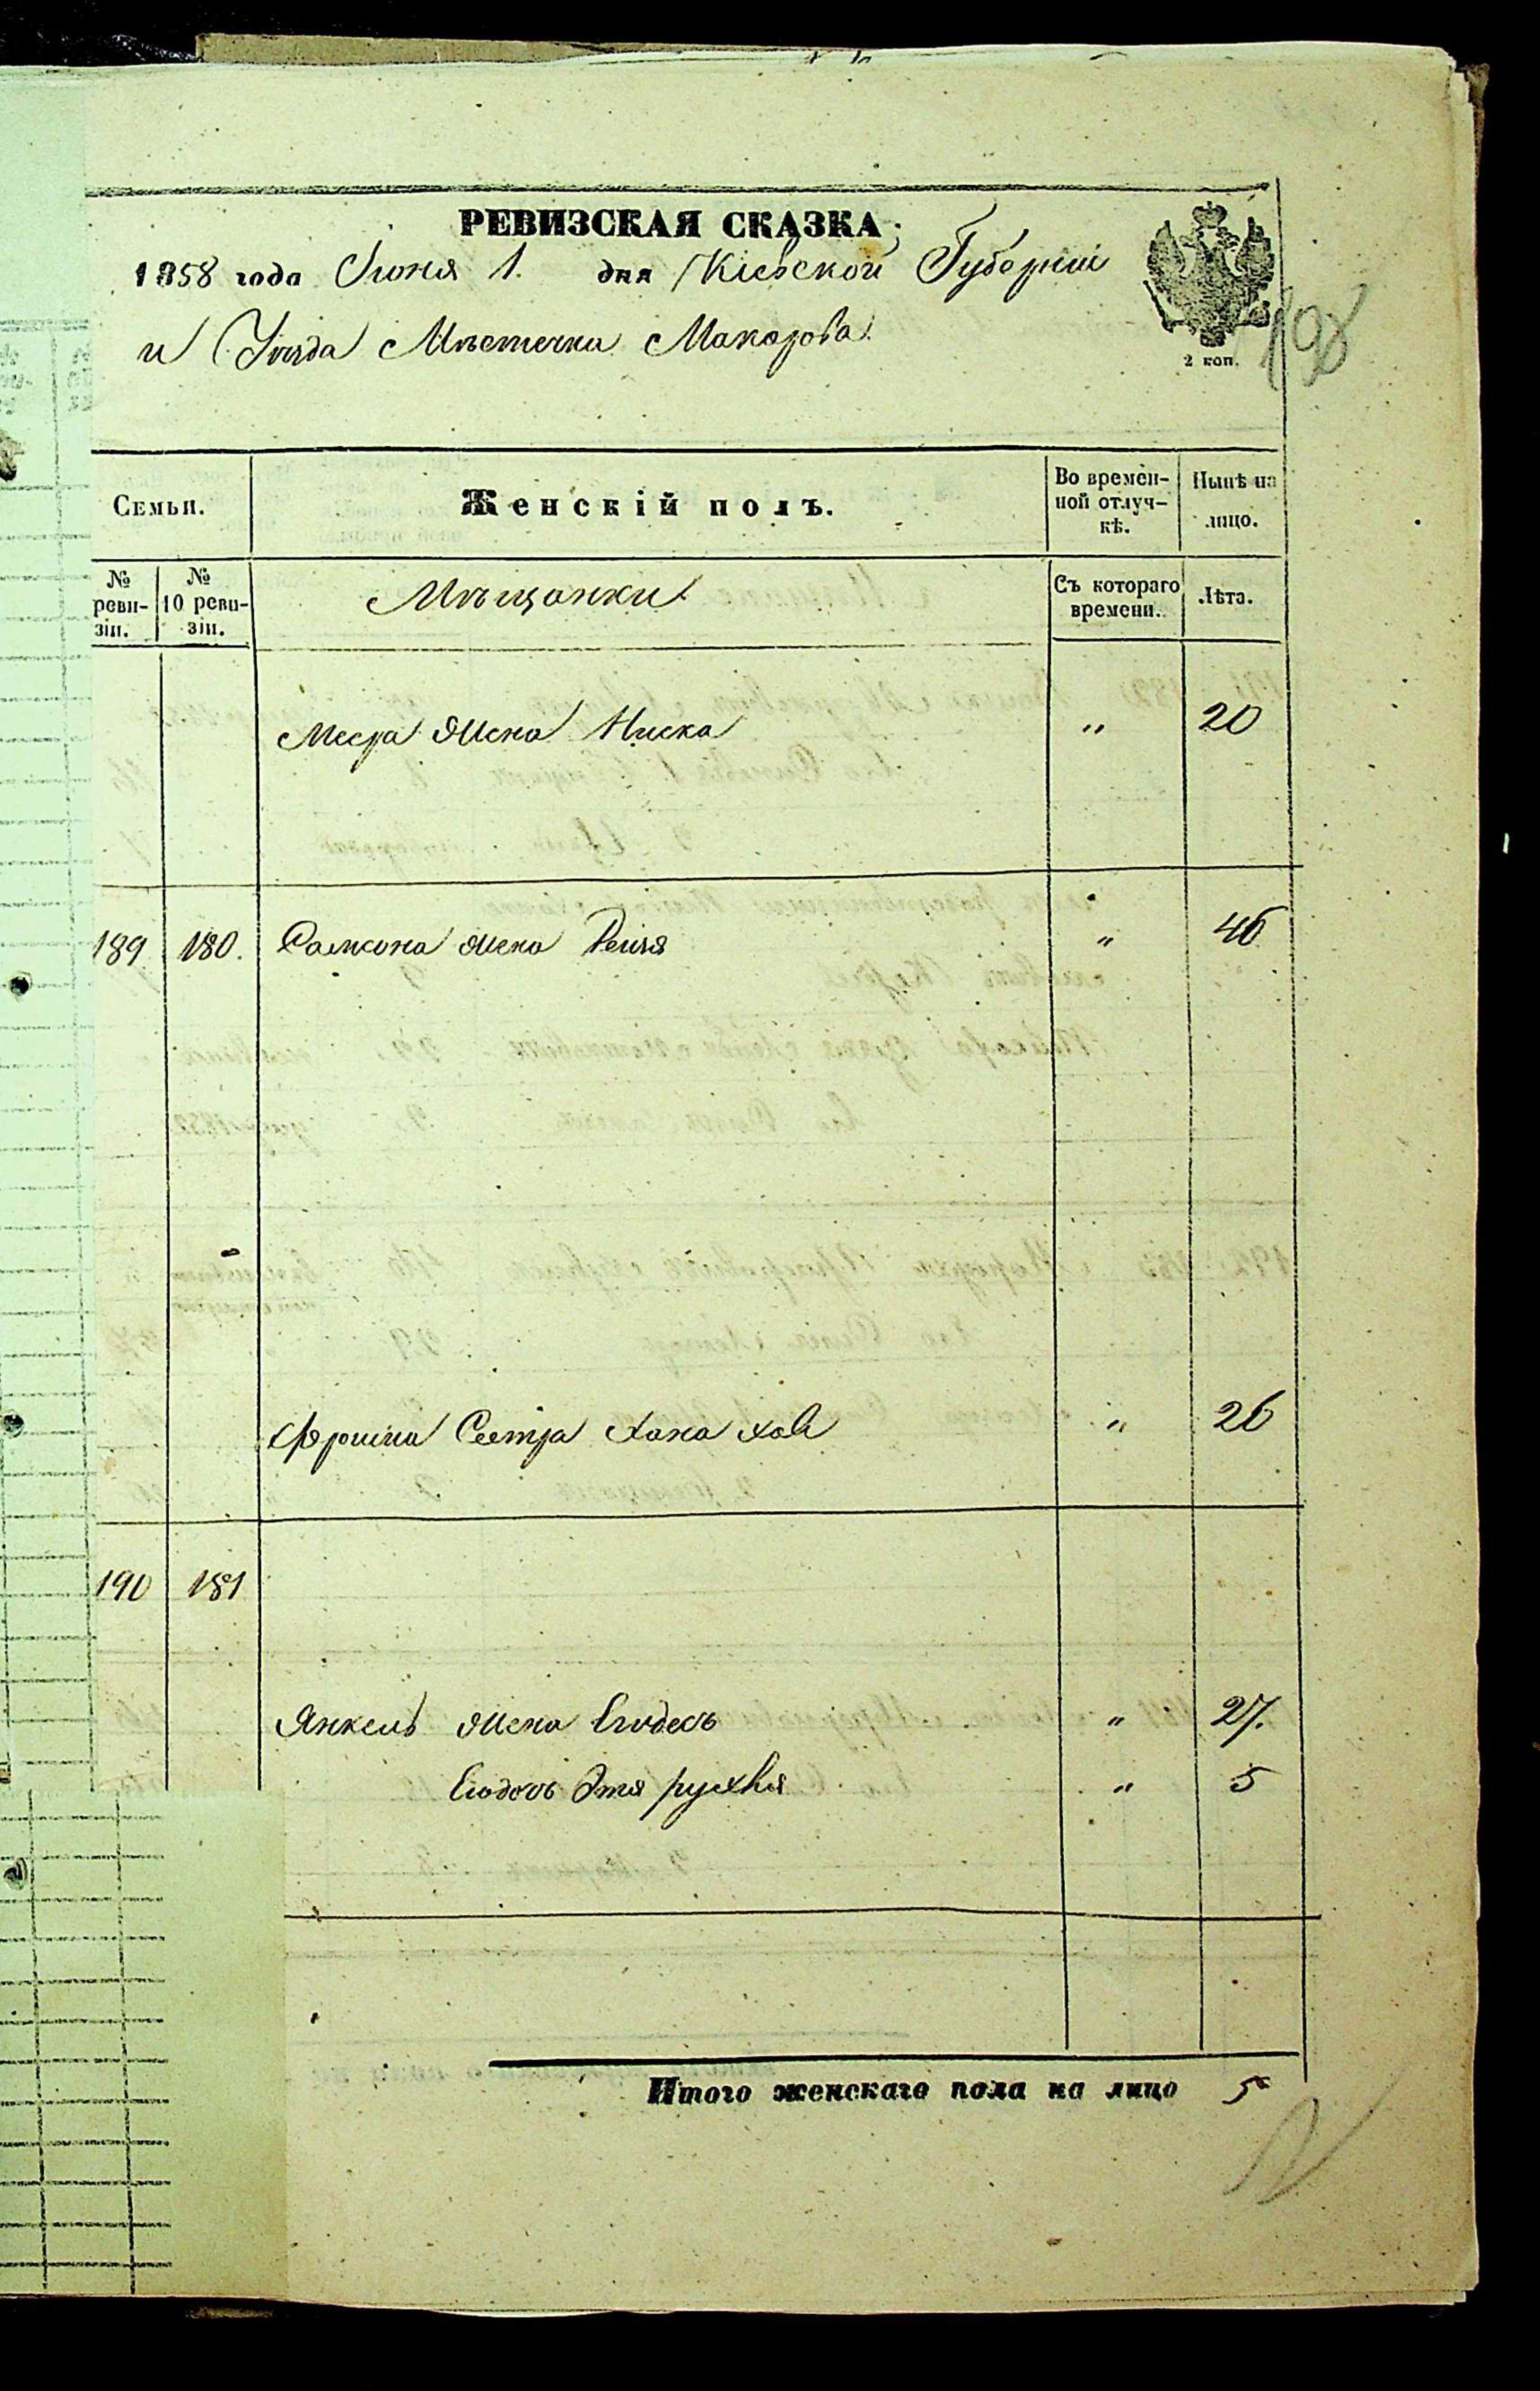 РЕВИЗСКАЯ СКАЗКА
1858 года Июня 1. дня Кіевской Губерніи
и Уѣзда Мѣстечка Макарова
2 коп.
198
Семьи.
Женскій полъ.
Во времен-
ной отлуч-
кѣ.
Нынѣ на
лицо.
№
реви-
зіи.
№
10 реви-
зіи.
Мѣщанки
Съ котораго
времени.
Лѣта.
Меера Жена Ниска " 20
189 180. Самсона жена Рейзя " 46
Сестра Хана Хая " 26
190 181
Янкель жена Егодесь " 27.
Этя рухля " 5
Итого женскаго пола на лицо 5